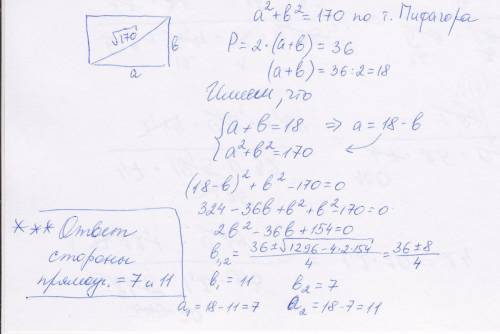 √170
в
а
а²+в²=170 по т. Пифагора
P=2·(а+в)=36
(а+в)=36:2=18
Имеем, что
{а+в=18 ⇒ а=18-в
{а²+в²=170
(18-в)²+в²-170=0
324-36в+в²+в²-170=0
2в²-36в+154=0
в₁,₂=(36±√1296-4·2·154)/4=(36±8)/4
в₁=11 в₂=7
а₁=18-11=7 а₂=18-7=11
*** Ответ
стороны
прямоуг.=7 и 11